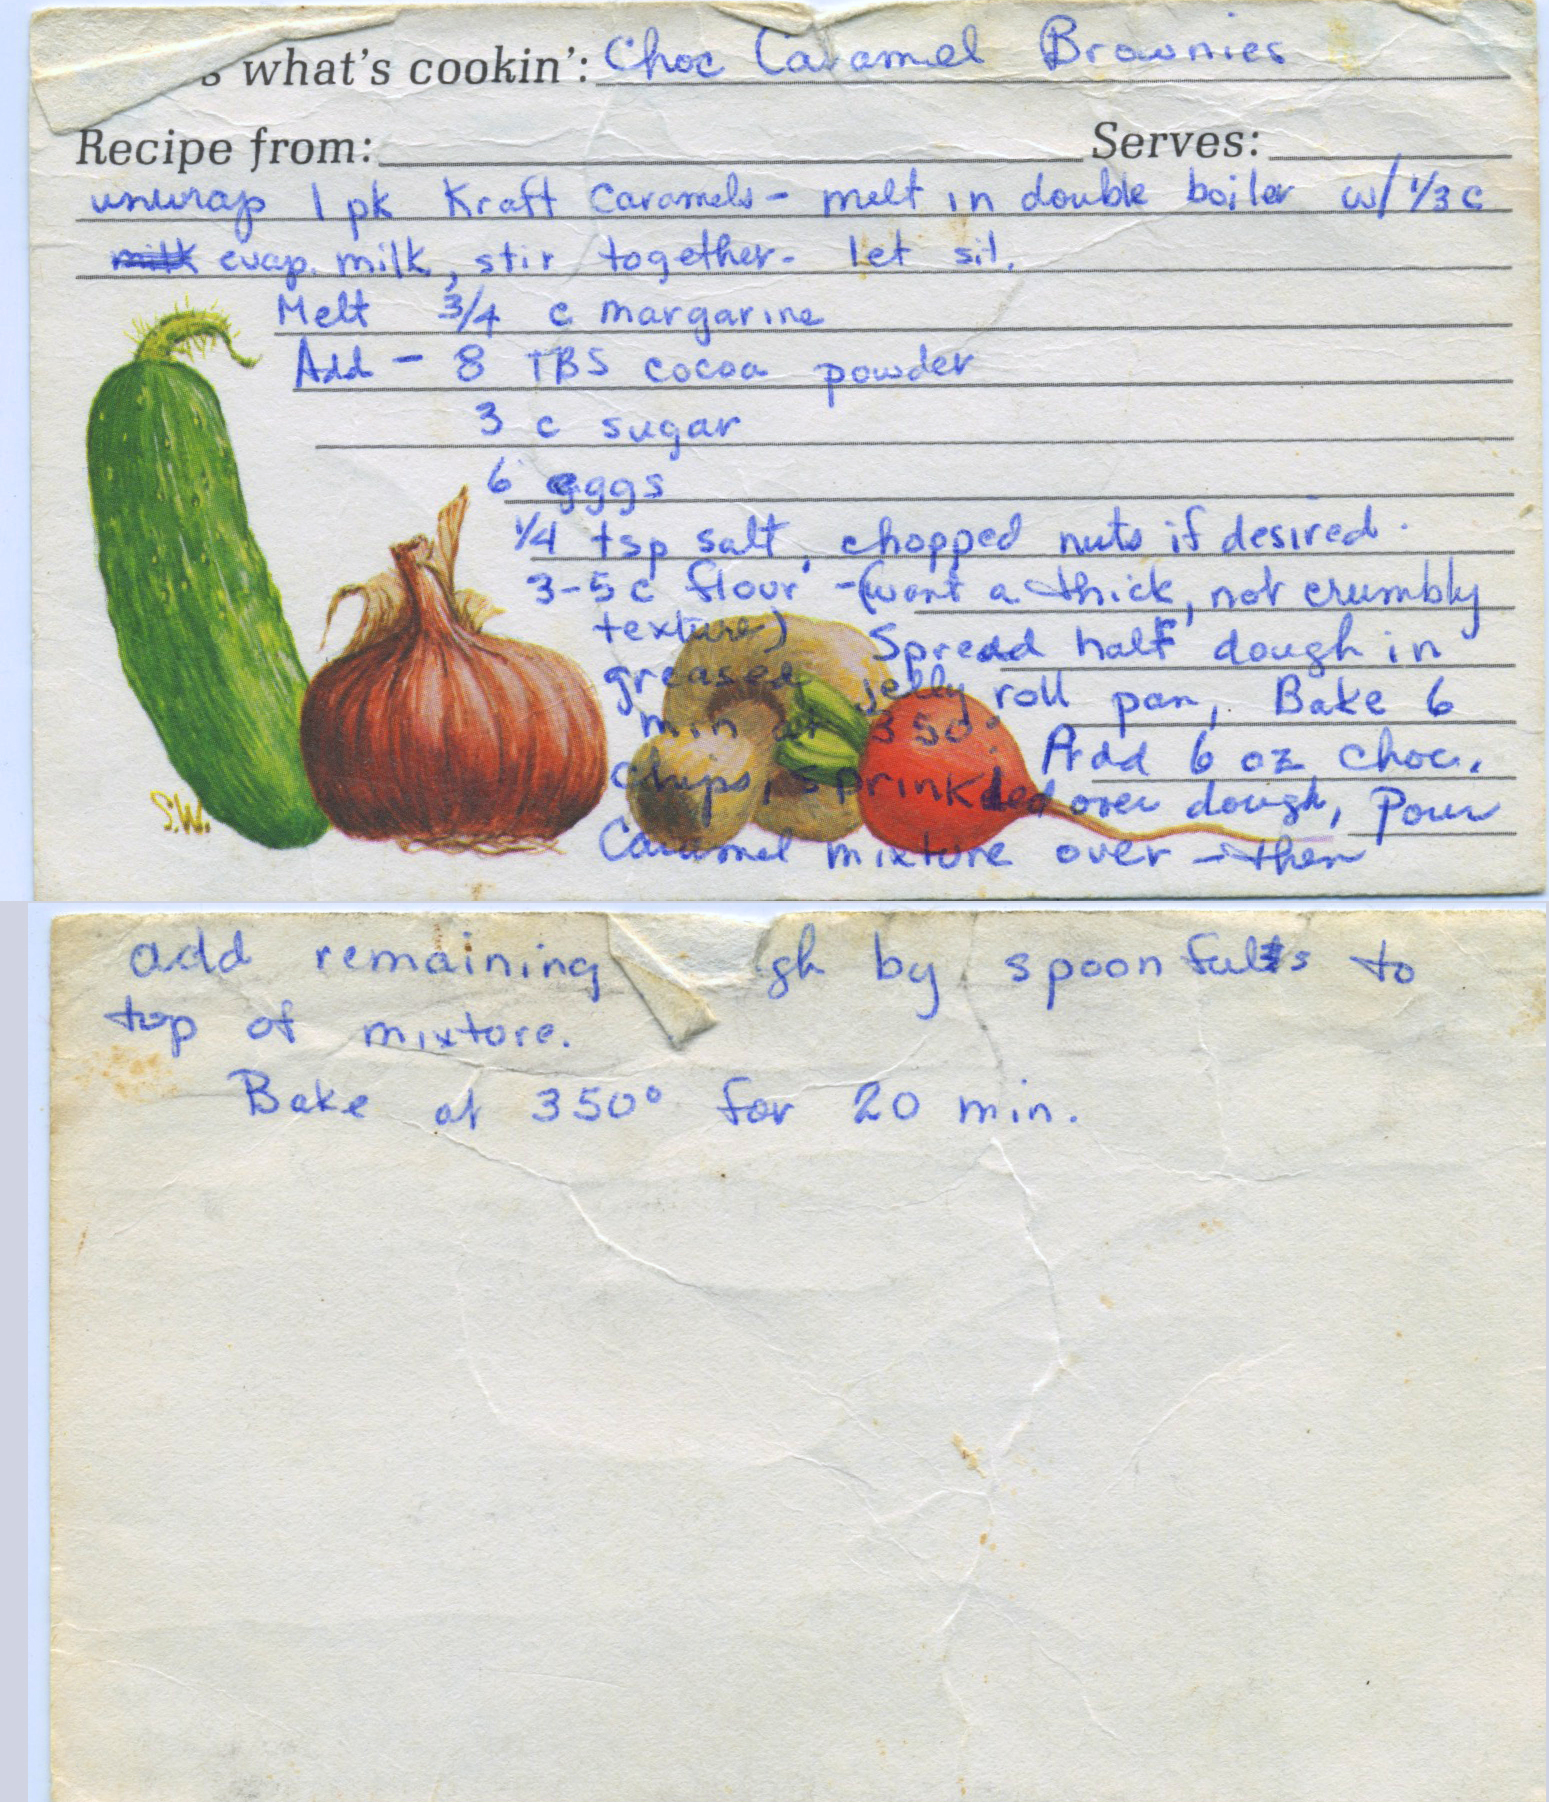 s what's cookin': Choc Caramel Brownies
Recipe from: Serves:
unwrap 1 pk Kraft Caramels - melt in double boiler w/ 1/3 c
milk evap. milk, stir together - let sit.
Melt 3/4 c margarine
Add - 8 TBS cocoa powder
3 c sugar
6 eggs
1/4 tsp salt, chopped nuts if desired.
3-5 c flour - (want a thick, not crumbly
texture) Spread half dough in
greased jelly roll pan, Bake 6
min at 350°. Add 6 oz choc.
chips, sprinkled over dough, Pour
Caramel mixture over - then
S.W.
add remaining gh by spoonfulls to
top of mixture.
Bake at 350° for 20 min.